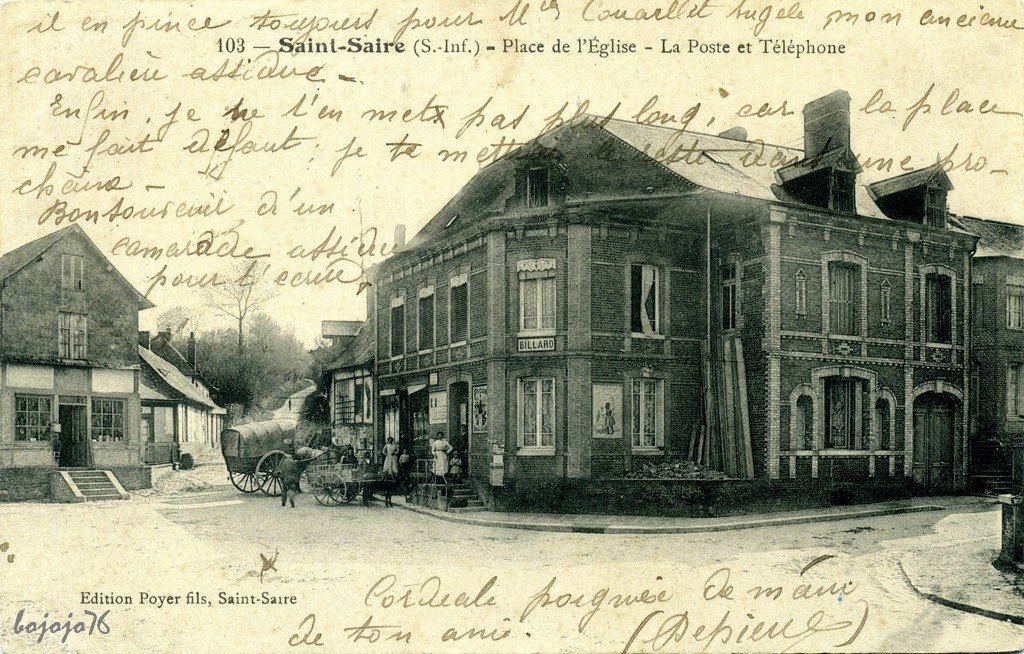 il en pince toujours pour Mlle Angèle mon ancienne
103 — Saint-Saire (S.-Inf.) - Place de l'Église - La Poste et Téléphone
cavalière assidue —
Enfin, je ne t'en mets pas plus long, car la place
me fait défaut ; je te mettrai le reste dans une pro-
chaine —
Bonsoir d'un
camarade assidu
pour l'écrire
BILLARD
Edition Poyer fils, Saint-Saire
Cordiale poignée de main
de ton ami.
bojojo76